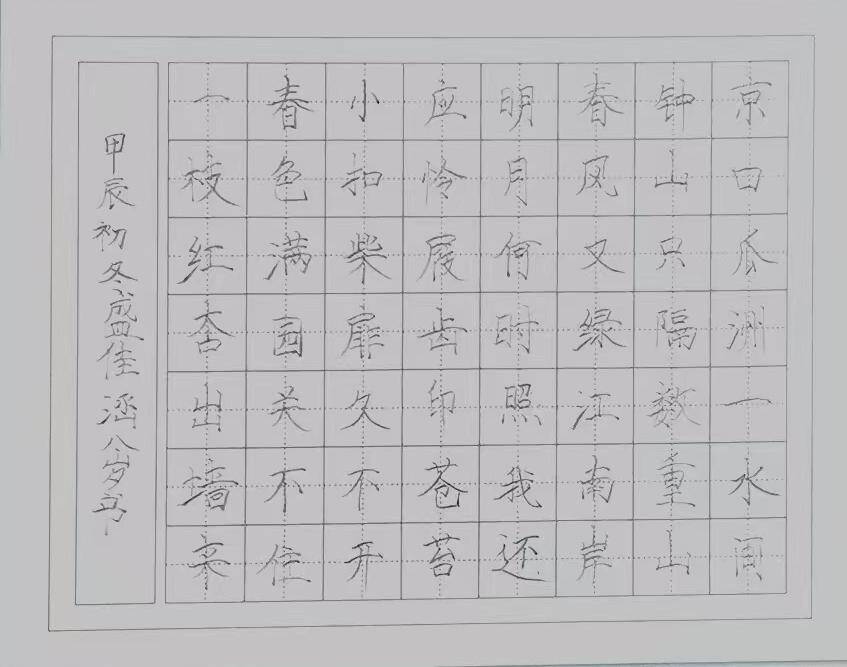 京口瓜洲一水间
钟山只隔数重山
春风又绿江南岸
明月何时照我还
应怜屐齿印苍苔
小扣柴扉久不开
春色满园关不住
一枝红杏出墙来
甲辰初冬盛佳涵八岁书